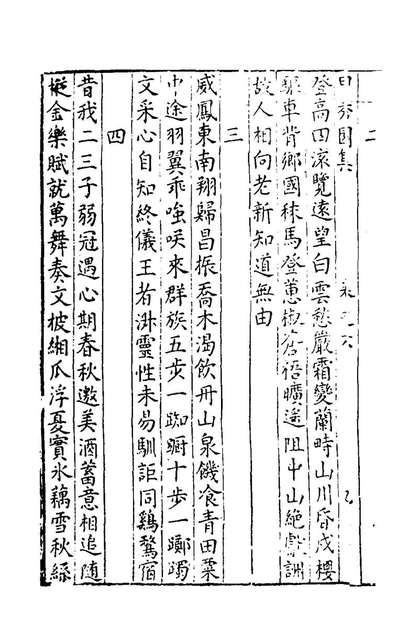 二
登高四流覽遠望白雲愁嚴霜變蘭時山川昏戍樓
驅車背鄉國秣馬登蔥椒蒼梧曠遙阻中山絕獻詶
故人相向老新知道無由
三
威鳳東南翔歸昌振喬木渴飲丹山泉饑飡青田粟
中途羽翼乖嗤唉來群族五步一踟躕十步一躑躅
文采心自知終儀王者淋靈性未易馴詎同鷄鶩宿
四
昔我二三子弱冠遇心期春秋邀美酒蓄意相追隨
摐金樂賦就萬舞奏文披緗瓜浮夏實氷藕雪秋絲